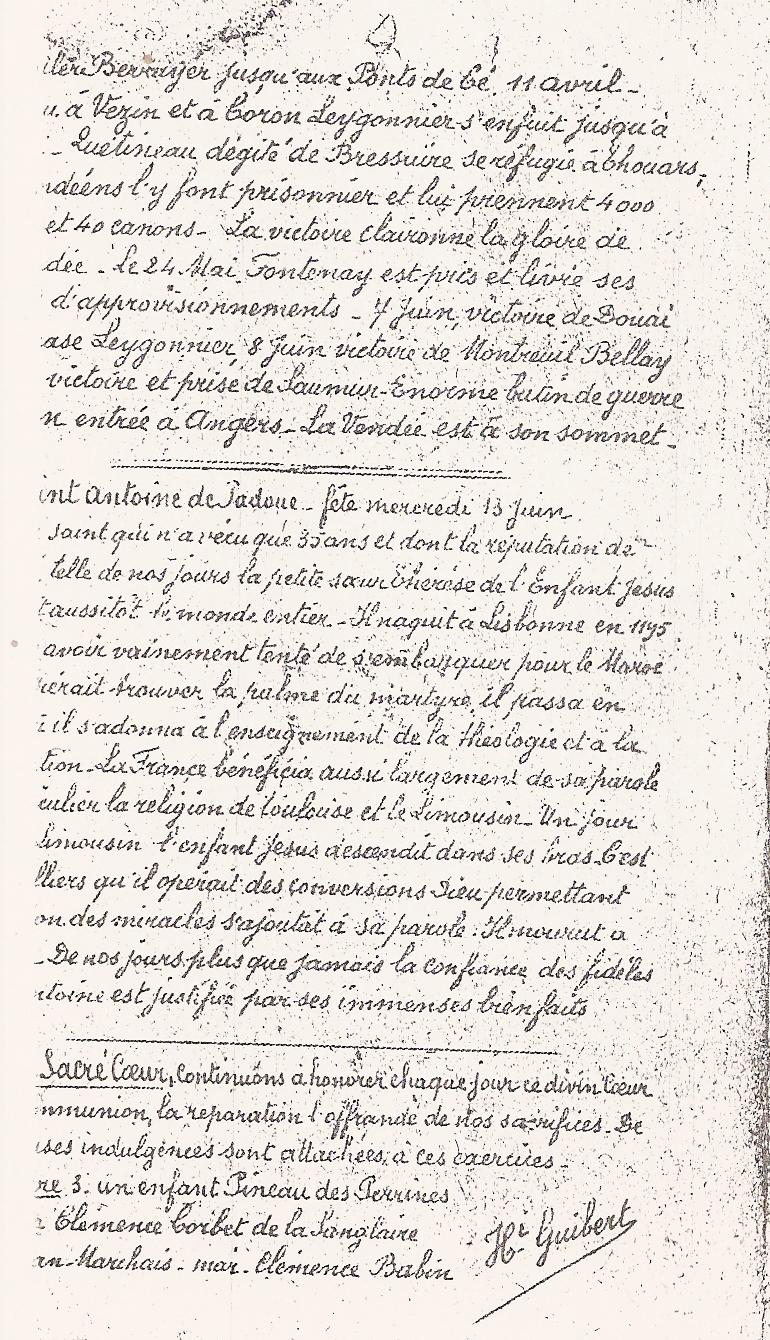 iler Berruyer jusqu'aux Ponts de Cé. 11 avril -
u. à Vezin et à Coron Leygonnier s'enfuit jusqu'à
- Quétineau dégité de Bressuire se réfugie à Thouars,
ndéens l'y font prisonnier et lui prennent 4000
et 40 canons - La victoire claironne la gloire de
dée - le 24 Mai Fontenay est pris et livre ses
d'approvisionnements - 7 Juin, victoire de Douai
ase Leygonnier, 8 Juin victoire de Montreuil Bellay
victoire et prise de Saumur - Enorme butin de guerre
n entrée à Angers - La Vendée est à son sommet -
int Antoine de Padoue - fête mercredi 13 Juin
saint qui n'a vécu que 35 ans et dont la réputation de
telle de nos jours la petite sœur Thérèse de l'Enfant Jésus
t aussitôt le monde entier - Il naquit à Lisbonne en 1195
avoir vainement tenté de s'embarquer pour le Maroc
érait trouver la palme du martyre, il passa en
i il s'adonna à l'enseignement de la théologie et à la
tion - La France bénéficia aussi largement de sa parole
iculier la religion de Toulouse et le Limousin - Un jour
Limousin l'enfant Jésus descendit dans ses bras. C'est
lliers qu'il opérait des conversions Dieu permettant
on des miracles s'ajoutât à sa parole. Il mourut a
- De nos jours plus que jamais la confiance des fidèles
ntoine est justifiée par ses immenses bienfaits
Sacré Cœur, continuons à honorer chaque jour ce divin Cœur
mmunion, la réparation l'offrande de nos sacrifices - De
uses indulgences sont attachées à ces exercices -
re 3. un enfant Pineau des Perrines
Clémence Corbet de la Sanglaire
an-Marchais - mar. Clémence Babin
Hi Guibert